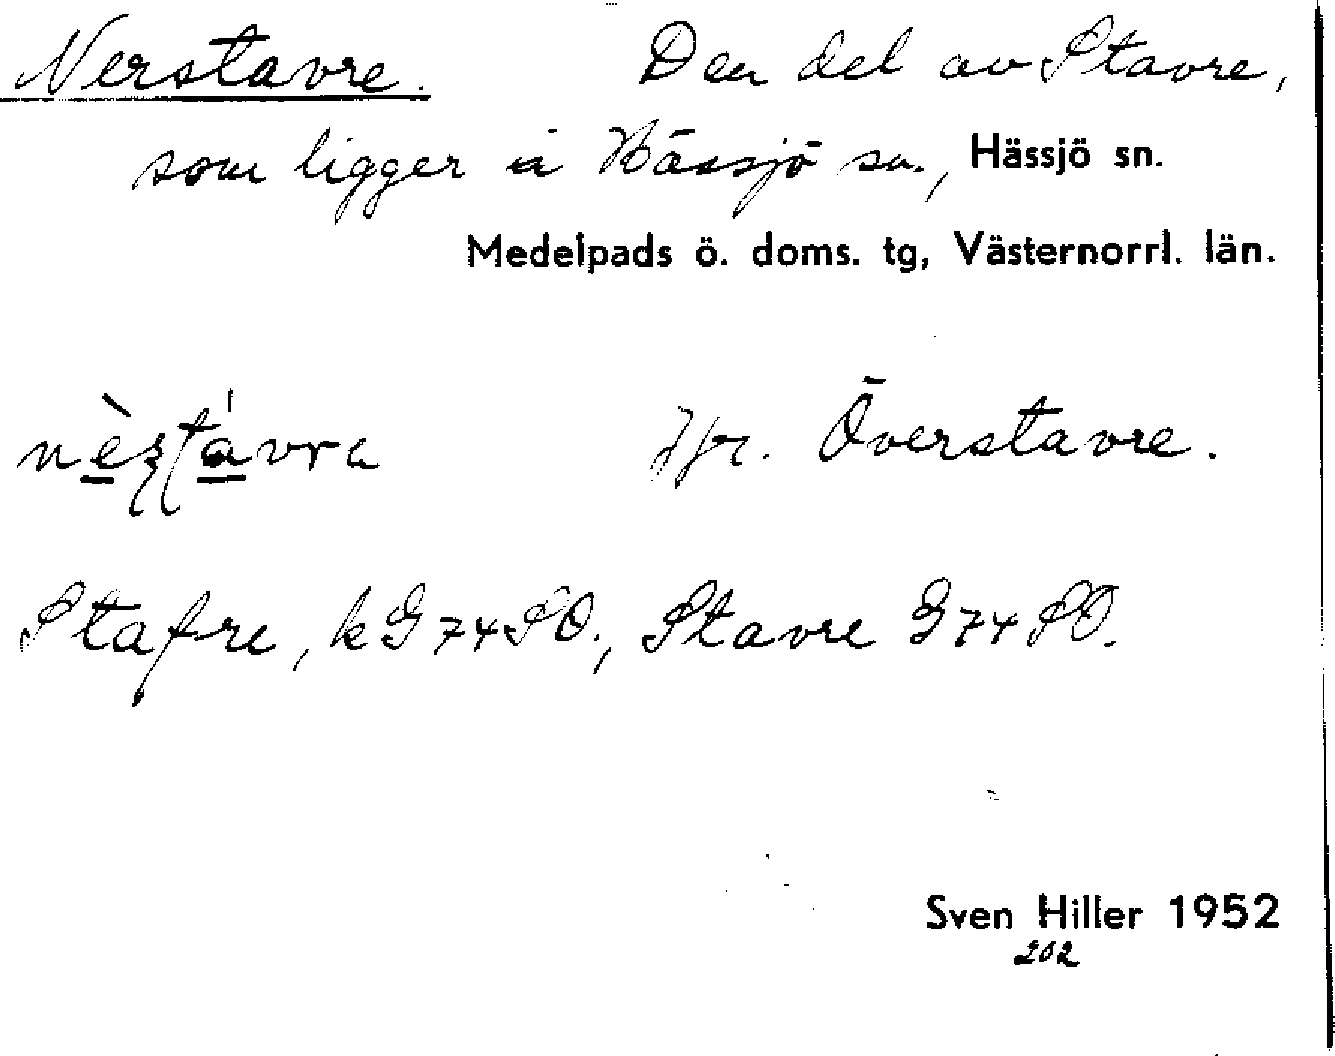 Nerstavre. Den del av Stavre,
som ligger i Hässjö sn., Hässjö sn.
Medelpads ö. doms. tg, Västernorrl. län.
Jfr. Överstavre.
Stafre, k G 74 SO., Stavre G 74 SO.
Sven Hiller 1952
202